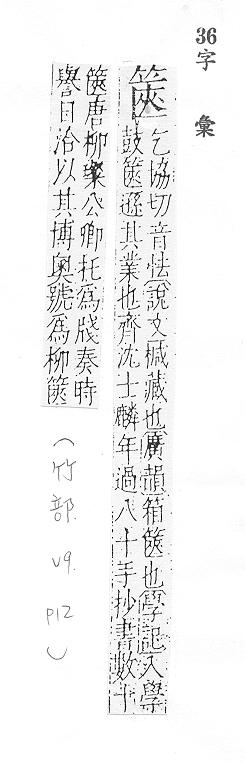 36
字彙
篋 乞協切音怯說文椷藏也廣韻箱篋也學記入學
鼓篋遜其業也齊沈士麟年過八十手抄書數十
篋唐柳璨公卿托爲牋奏時
譽日洽以其博奧號爲柳篋
(竹部. V9. P12)